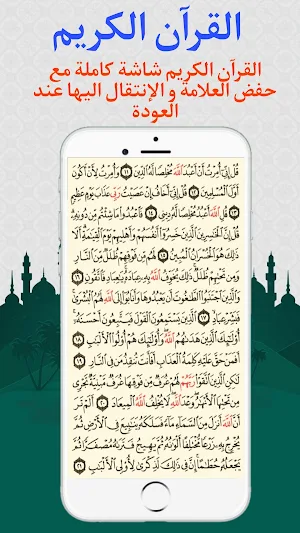 القرآن الكريم
القرآن الكريم شاشة كاملة مع
حفض العلامة و الإنتقال اليها عند
العودة
قُلْ إِنِّي أُمِرْتُ أَنْ أَعْبُدَ اللَّهَ مُخْلِصًا لَّهُ الدِّينَ ١١ وَأُمِرْتُ لِأَنْ أَكُونَ
أَوَّلَ الْمُسْلِمِينَ ١٢ قُلْ إِنِّي أَخَافُ إِنْ عَصَيْتُ رَبِّي عَذَابَ يَوْمٍ عَظِيمٍ
١٣ قُلِ اللَّهَ أَعْبُدُ مُخْلِصًا لَّهُ دِينِي ١٤ فَاعْبُدُوا مَا شِئْتُم مِّن دُونِهِ
قُلْ إِنَّ الْخَٰسِرِينَ الَّذِينَ خَسِرُوا أَنفُسَهُمْ وَأَهْلِيهِمْ يَوْمَ الْقِيَٰمَةِ أَلَا
ذَٰلِكَ هُوَ الْخُسْرَانُ الْمُبِينُ ١٥ لَهُم مِّن فَوْقِهِمْ ظُلَلٌ مِّنَ النَّارِ
وَمِن تَحْتِهِمْ ظُلَلٌ ذَٰلِكَ يُخَوِّفُ اللَّهُ بِهِ عِبَادَهُ يَٰعِبَادِ فَاتَّقُونِ ١٦
وَالَّذِينَ اجْتَنَبُوا الطَّٰغُوتَ أَن يَعْبُدُوهَا وَأَنَابُوا إِلَى اللَّهِ لَهُمُ الْبُشْرَىٰ
فَبَشِّرْ عِبَادِ ١٧ الَّذِينَ يَسْتَمِعُونَ الْقَوْلَ فَيَتَّبِعُونَ أَحْسَنَهُ
أُولَٰئِكَ الَّذِينَ هَدَىٰهُمُ اللَّهُ وَأُولَٰئِكَ هُمْ أُولُوا الْأَلْبَٰبِ ١٨
أَفَمَنْ حَقَّ عَلَيْهِ كَلِمَةُ الْعَذَابِ أَفَأَنتَ تُنقِذُ مَن فِي النَّارِ ١٩
لَٰكِنِ الَّذِينَ اتَّقَوْا رَبَّهُمْ لَهُمْ غُرَفٌ مِّن فَوْقِهَا غُرَفٌ مَّبْنِيَّةٌ تَجْرِي
مِن تَحْتِهَا الْأَنْهَٰرُ وَعْدَ اللَّهِ لَا يُخْلِفُ اللَّهُ الْمِيعَادَ ٢٠ أَلَمْ تَرَ
أَنَّ اللَّهَ أَنزَلَ مِنَ السَّمَاءِ مَاءً فَسَلَكَهُ يَنَٰبِيعَ فِي الْأَرْضِ ثُمَّ
يُخْرِجُ بِهِ زَرْعًا مُّخْتَلِفًا أَلْوَٰنُهُ ثُمَّ يَهِيجُ فَتَرَىٰهُ مُصْفَرًّا ثُمَّ
يَجْعَلُهُ حُطَٰمًا إِنَّ فِي ذَٰلِكَ لَذِكْرَىٰ لِأُولِي الْأَلْبَٰبِ ٢١